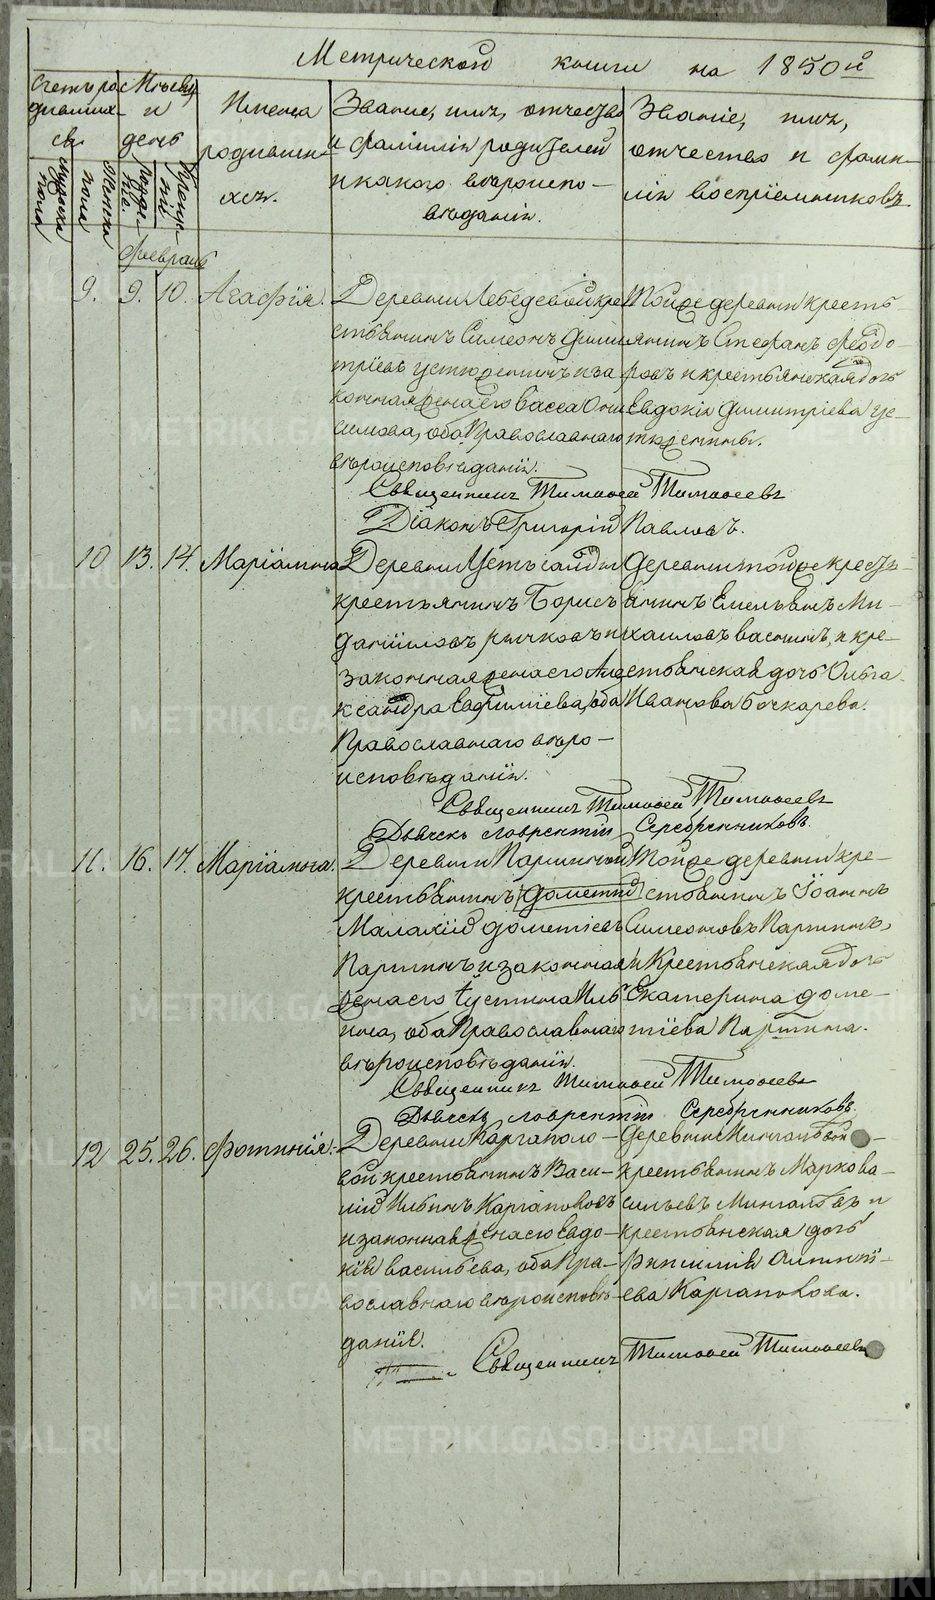 Метрической книги на 1850й
Счетъ ро-
дивших-
ся.
Мужеска
пола
Женска
пола
Мѣсяц
и
день
Рожде-
нія.
Креще-
нія
Имена
родивши-
хся.
Званіе, имя, отчество
и фамилія родителей
и какого вѣроиспо-
вѣданія.
Званіе, имя,
отчество и фами-
лія воспріемниковъ.
Февраль
9. 9. 10. Агафія.
Деревни Лебедевой кре-
стьянинъ Симеонъ Дими-
тріевъ Устюжанинъ и за-
конная жена его Васса Они-
симова, оба Православнаго
вѣроисповѣданія.
Той же деревни кресть-
янинъ Стефанъ Ѳеодо-
ровъ и крестьянская дочь
Евдокія Димитріева Ус-
тюжанины.
Священникъ Тимоѳей Тимоѳеевъ
Діаконъ Григорій Павловъ.
10 13. 14. Маріамна
Деревни Усть
крестьянинъ Борисъ
Данииловъ Рычковъ и
законная жена его Але-
ксандра Евфиміева, оба
Православнаго вѣро-
исповѣданія.
Деревни той же кресть-
янинъ Емельянъ Ми-
хаиловъ и кре-
стьянская дочь Ольга
Иванова Бочкарева.
Священникъ Тимоѳей Тимоѳеевъ
Дьячекъ Лаврентій Серебренниковъ.
11. 16. 17. Маріамна.
Деревни Паршиной
крестьянинъ Дометій
Малахій Дометіевъ
Паршинъ и законная
жена его Іустина Иль-
ина, оба Православнаго
вѣроисповѣданія.
Той же деревни кре-
стьянинъ Іоаннъ
Симеоновъ Паршинъ,
и Крестьянская дочь
Екатерина Доме-
тіева Паршина.
Священникъ Тимоѳей Тимоѳеевъ
Дьячекъ Лаврентій Серебренниковъ.
12 25. 26. Фотинія.
Деревни Каргаполо-
вой крестьянинъ Васи-
лій Ильинъ Каргаполовъ
и законная жена его Евдо-
кія Васильева, оба Пра-
вославнаго вѣроисповѣ-
данія.
Деревни Мингалевой
крестьянинъ Марко Ва-
сильевъ Мингалевъ и
крестьянская дочь
Рипсимія
ева Каргаполова.
Священникъ Тимоѳей Тимоѳеевъ
METRIKI.GASO-URAL.RU